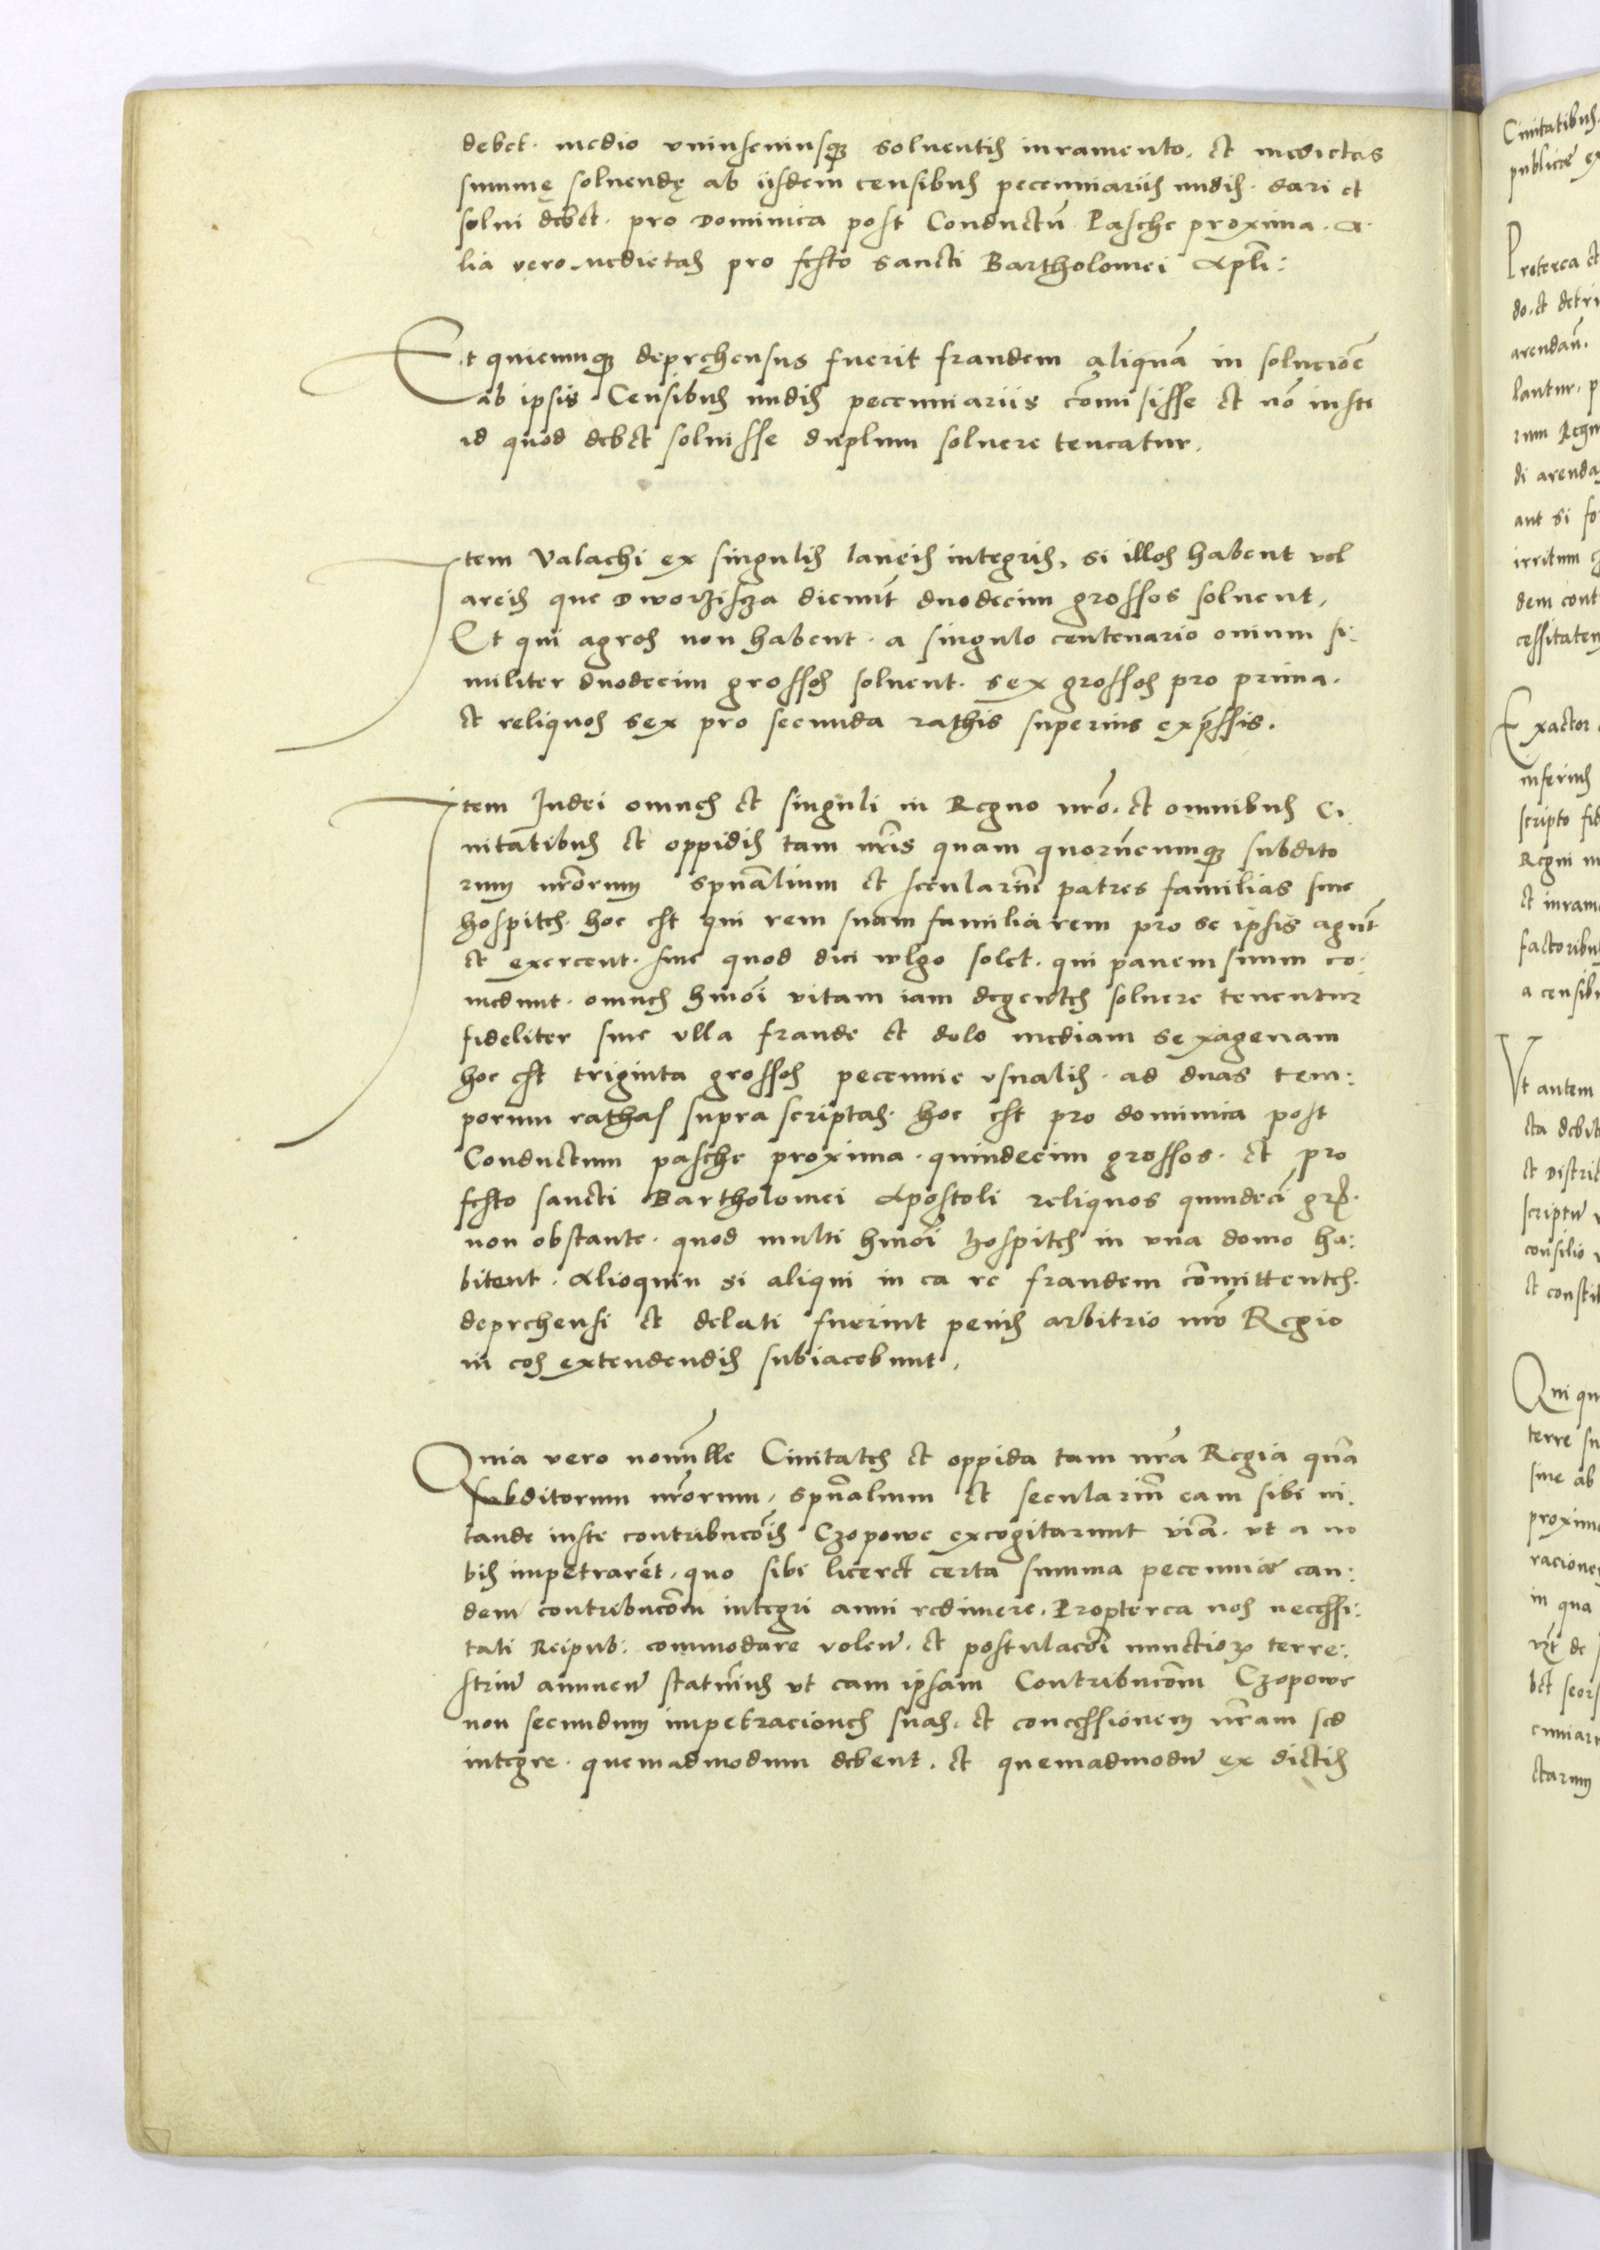 debet. medio vniuscuiusq; soluentis iuramento. et medietas
summę soluendę ab iisdem censibus pecuniariis nudis. dari et
solui debet. pro Dominica post Conductū Pasche proxima. A.
lia vero medietas pro festo sancti Bartholomei Apłi:
Et quicunq; deprehensus fuerit fraudem aliquā in solucioē
ab ipsis Censibus nudis pecuniariis cōmisisse et nō iuste
id quod debet soluisse duplum soluere teneatur.
Item Valachi ex singulis laneis integris, si illos habent vel
areis que Dworzisza dicunt duodecim grossos soluent,
Et qui agros non habent. a singulo centenario ouium si:
militer duodecim grossos soluent. sex grossos pro prima.
et reliquos sex pro secunda rathis superius expssis.
Item Iudei omnes et singuli in Regno nrō. et omnibus Ci.
uitatibus et oppidis tam nrīs quam quorūcumq; subdito
rum nrōrum spūalium et seculariū patres familias siue
hospites. hoc est qui rem suam familiarem pro se ipsis agūt
et exercent. siue quod dici wlgo solet. qui panem suum co.
medunt. omnes hmōi vitam iam degentes soluere tenentur
fideliter sine vlla fraude et dolo mediam sexagenam
hoc est triginta grossos pecunie vsualis. ad duas tem:
porum rathas supra scriptas. hoc est pro dominica post
Conductum pasche proxima. quindecim grossos. et pro
festo sancti Bartholomei Apostoli reliquos quindeci gr̄.
non obstante. quod multi hmōi hospites in vna domo ha:
bitent. Alioquin si aliqui in ea re fraudem cōmittentes.
deprehensi et delati fuerint penis arbitrio nrō Regio
in eos extendendis subiacebunt.
Quia vero nonnulle Ciuitates et oppida tam nrā Regia quā
subditorum nrōrum, spūalium et seculariū eam sibi vi.
tande iuste contribucōis Czopowe excogitarunt viā. vt a no
bis impetrarēt, quo sibi liceret certa summa pecunie ean:
dem contribucōm integri anni redimere. Propterea nos necessi:
tati Reipub: commodare volen̄. et postulacōi nunctioꝝ terre:
striū annuen̄ statuimus vt eam ipsam Contribucōm Czopowe
non secundum impetraciones suas. et concessionem nrām sed
integre. quemadmodum debent. et quemadmodū ex dictis